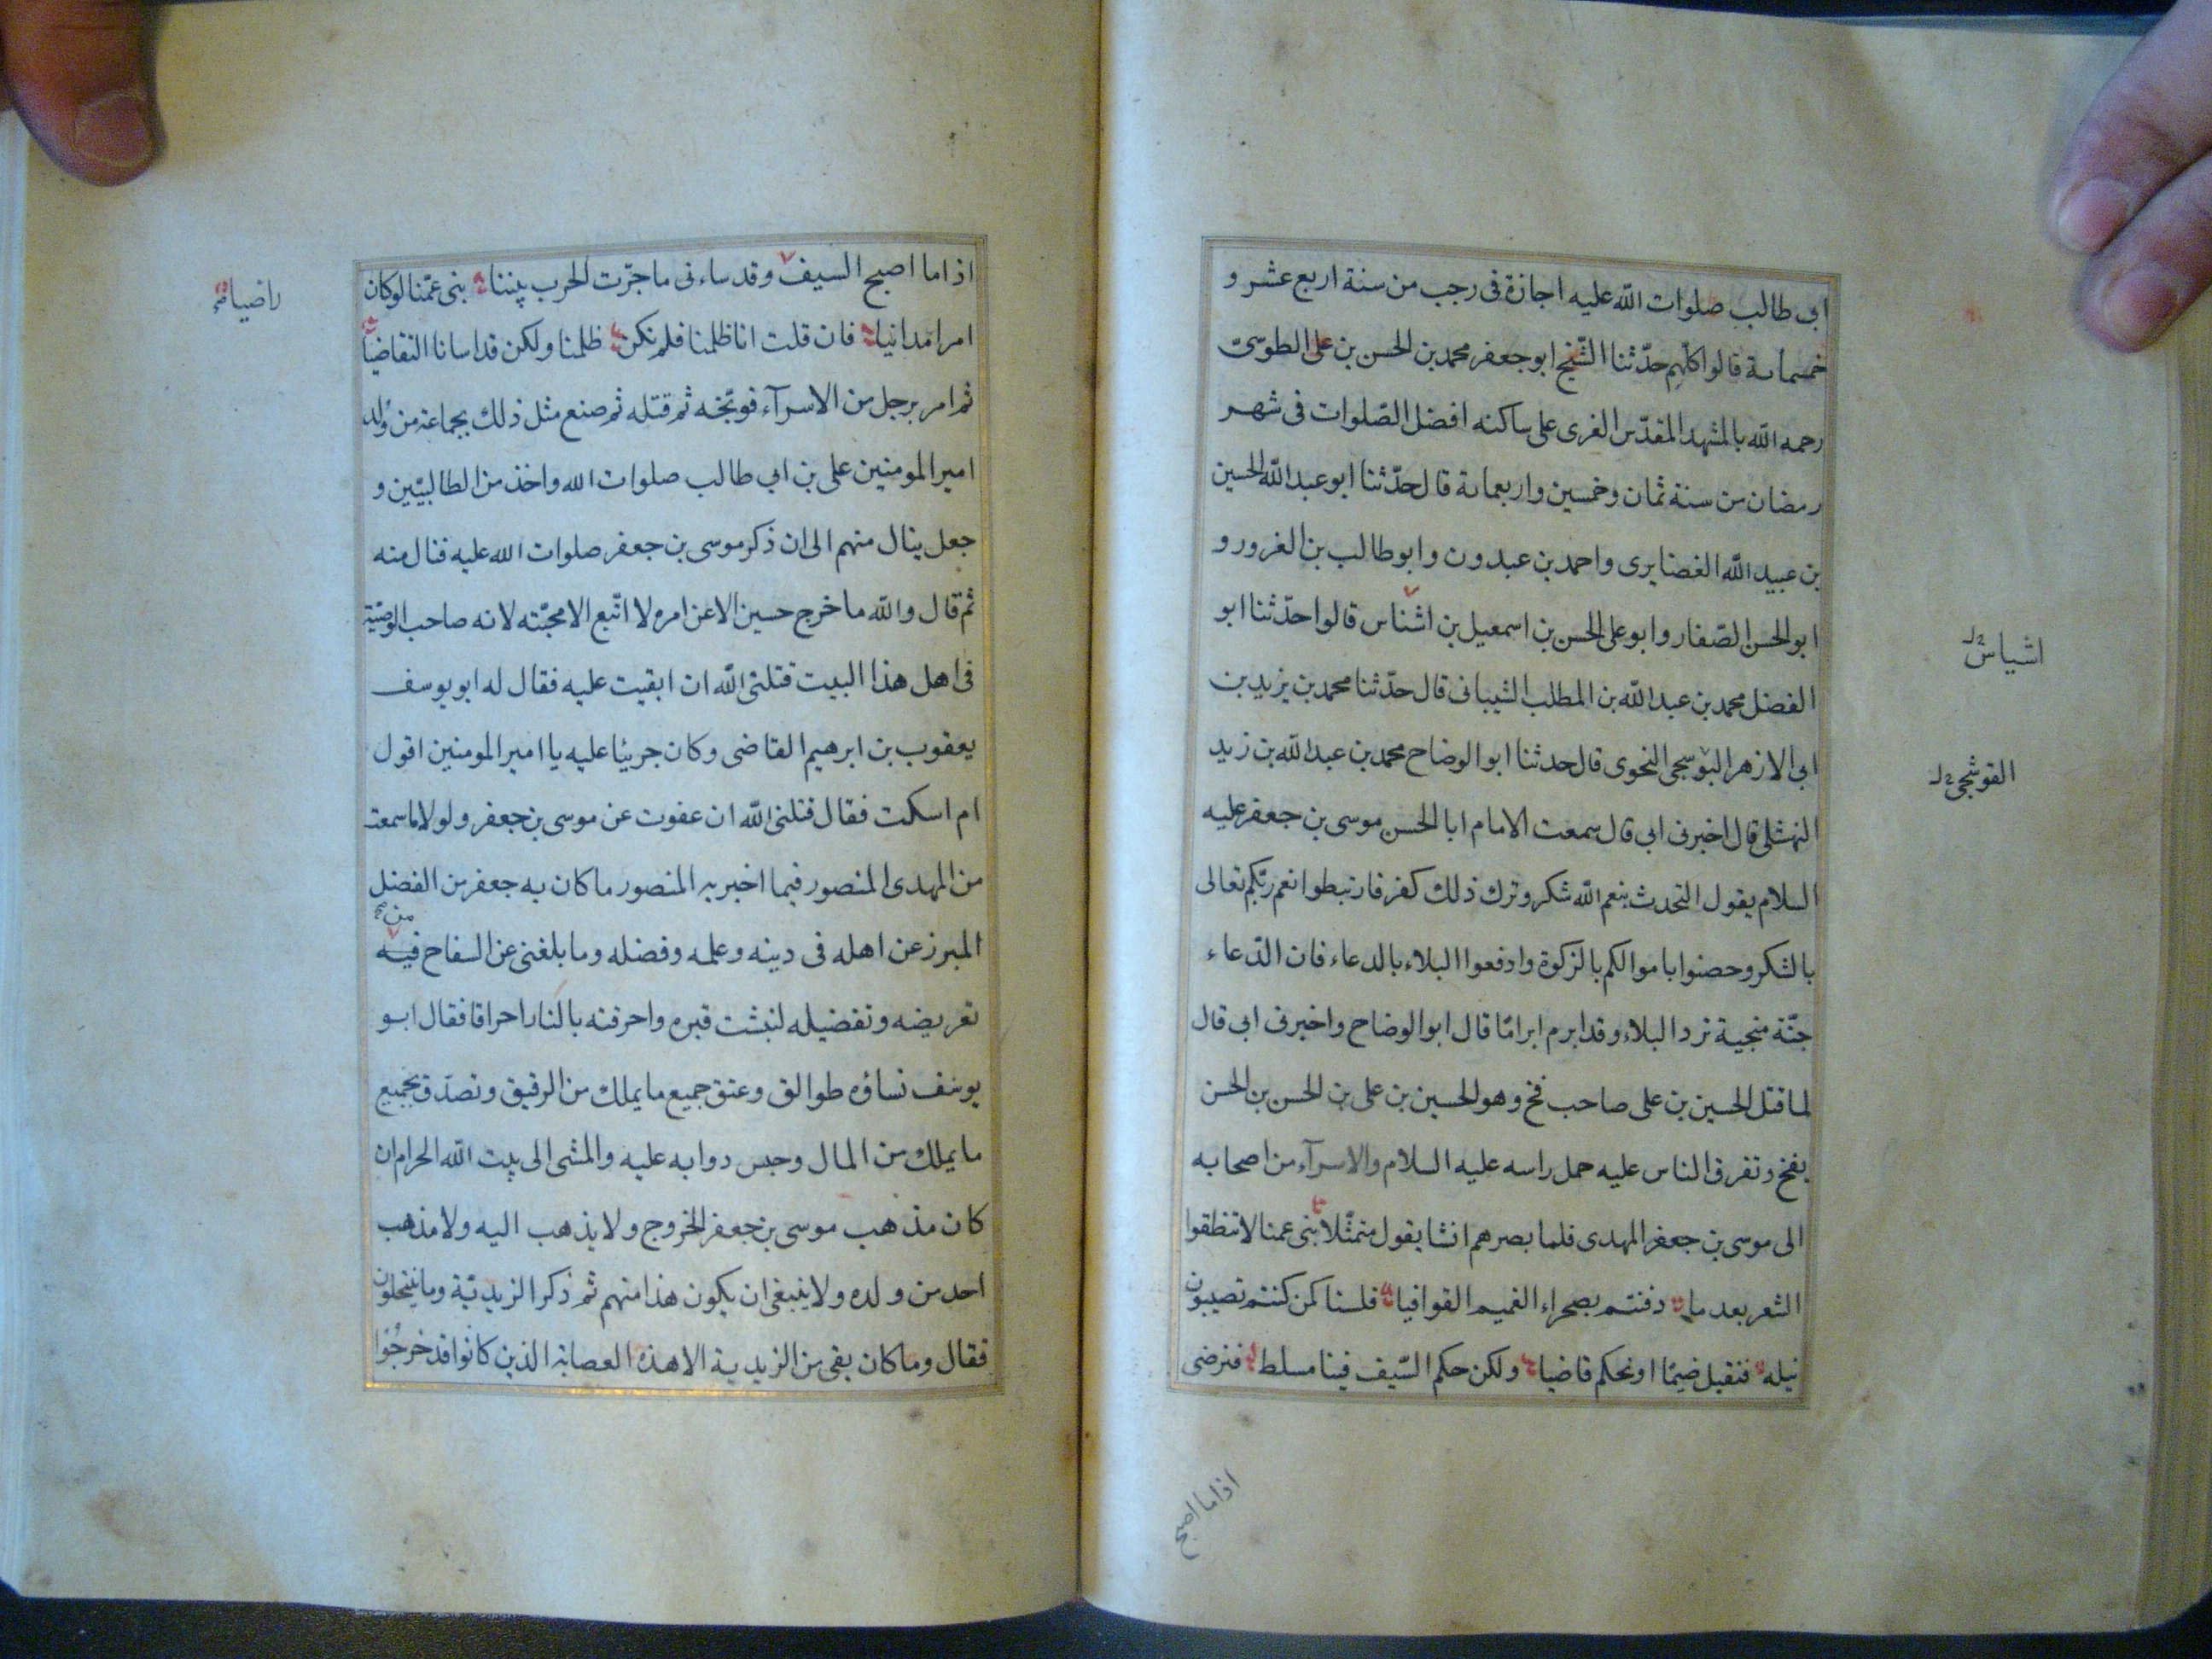 ابى طالب صلوات الله عليه اجازة فى رجب من سنة اربع عشر و
خمسمائة قالوا كلّهم حدّثنا الشّيخ ابو جعفر محمد بن الحسن بن على الطوسىّ
رحمه الله بالمشهد المقدّس الغرى على ساكنه افضل الصّلوات فى شهر
رمضان من سنة ثمان وخمسين واربعمائة قال حدّثنا ابو عبد الله الحسين
بن عبيد الله الغضايرى واحمد بن عبدون وابو طالب بن الغرور و
ابو الحسن الصّفار وابو على الحسن بن اسمعيل بن اشناس قالوا حدّثنا ابو
اشياس
الفضل محمد بن عبد الله بن المطلب الشيبانى قال حدّثنا محمد بن يزيد بن
ابى الازهر البوسجى النحوى قال حدثنا ابو الوضاح محمد بن عبد الله بن زيد
القوشجى
النهشلى قال اخبرنى ابى قال سمعت الامام ابا الحسن موسى بن جعفر عليه
السلام يقول التحدث بنعم الله شكر وترك ذلك كفر فارتبطوا نعم ربّكم تعالى
بالشكر وحصنوا باموالكم بالزكوة وادفعوا البلاء بالدعاء فان الدّعاء
جنّة منجية ترد البلاء وقد ابرم ابرامًا قال ابو الوضاح واخبرنى ابى قال
لما قتل الحسين بن على صاحب فخ وهو الحسين بن على بن الحسن بن الحسن
بفخ وتفرق الناس عليه حمل راسه عليه السلام والاسرآء من اصحابه
الى موسى بن جعفر المهدى فلما بصرهم انشا يقول متمثّلا بنى عمنا لا تنطقوا
الشعر بعد ما دفنتم بصحراء الغميم القوافيا فلسنا كمن كنتم تصيبون
نيله فنقبل ضيمًا او نحكم قاضيا ولكن حكم السّيف فينا مسلط فنرضى
اذا ما اصبح
اذا ما اصبح السيف وقد ساءنى ما جرّت الحرب بيننا بنى عمّنا لو كان
راضيا
امرا مدانيا فان قلت انا ظلمنا فلم نكن ظلمنا ولكن قد اسانا التقاضيا
ثم امر برجل من الاسرآء فوبّخه ثم قتله ثم صنع مثل ذلك بجماعة من وُلد
امير المومنين على بن ابى طالب صلوات الله واخذ من الطالبيّين و
جعل ينال منهم الى ان ذكر موسى بن جعفر صلوات الله عليه فنال منه
ثم قال والله ما خرج حسين الا عن امره لا اتّبع الا محبّته لانه صاحب الوصّية
فى اهل هذا البيت قتلنى الله ان ابقيت عليه فقال له ابو يوسف
يعقوب بن ابرهيم القاضى وكان جريئا عليه يا امير المومنين اقول
ام اسكت فقال قتلنى الله ان عفوت عن موسى بن جعفر ولولا ما سمعت
من المهدى المنصور فيما اخبر به المنصور ما كان به جعفر من الفضل
من
المبرز عن اهله فى دينه وعلمه وفضله وما بلغنى عن السفاح فيه
تعريضه وتفضيله لنبشت قبره واحرقته بالنار احراقا فقال ابو
يوسف نساؤه طوالق وعتق جميع ما يملك من الرقيق وتصدّق بجميع
ما يملك من المال وحبس دوابه عليه والمشى الى بيت الله الحرام ان
كان مذهب موسى بن جعفر الخروج ولا يذهب اليه ولا مذهب
احد من ولده ولا ينبغى ان يكون هذا منهم ثم ذكر الزيديّة وما ينتحلون
فقال وما كان بقى من الزيدية الا هذه العصابة الذين كانوا قد خرجُوا